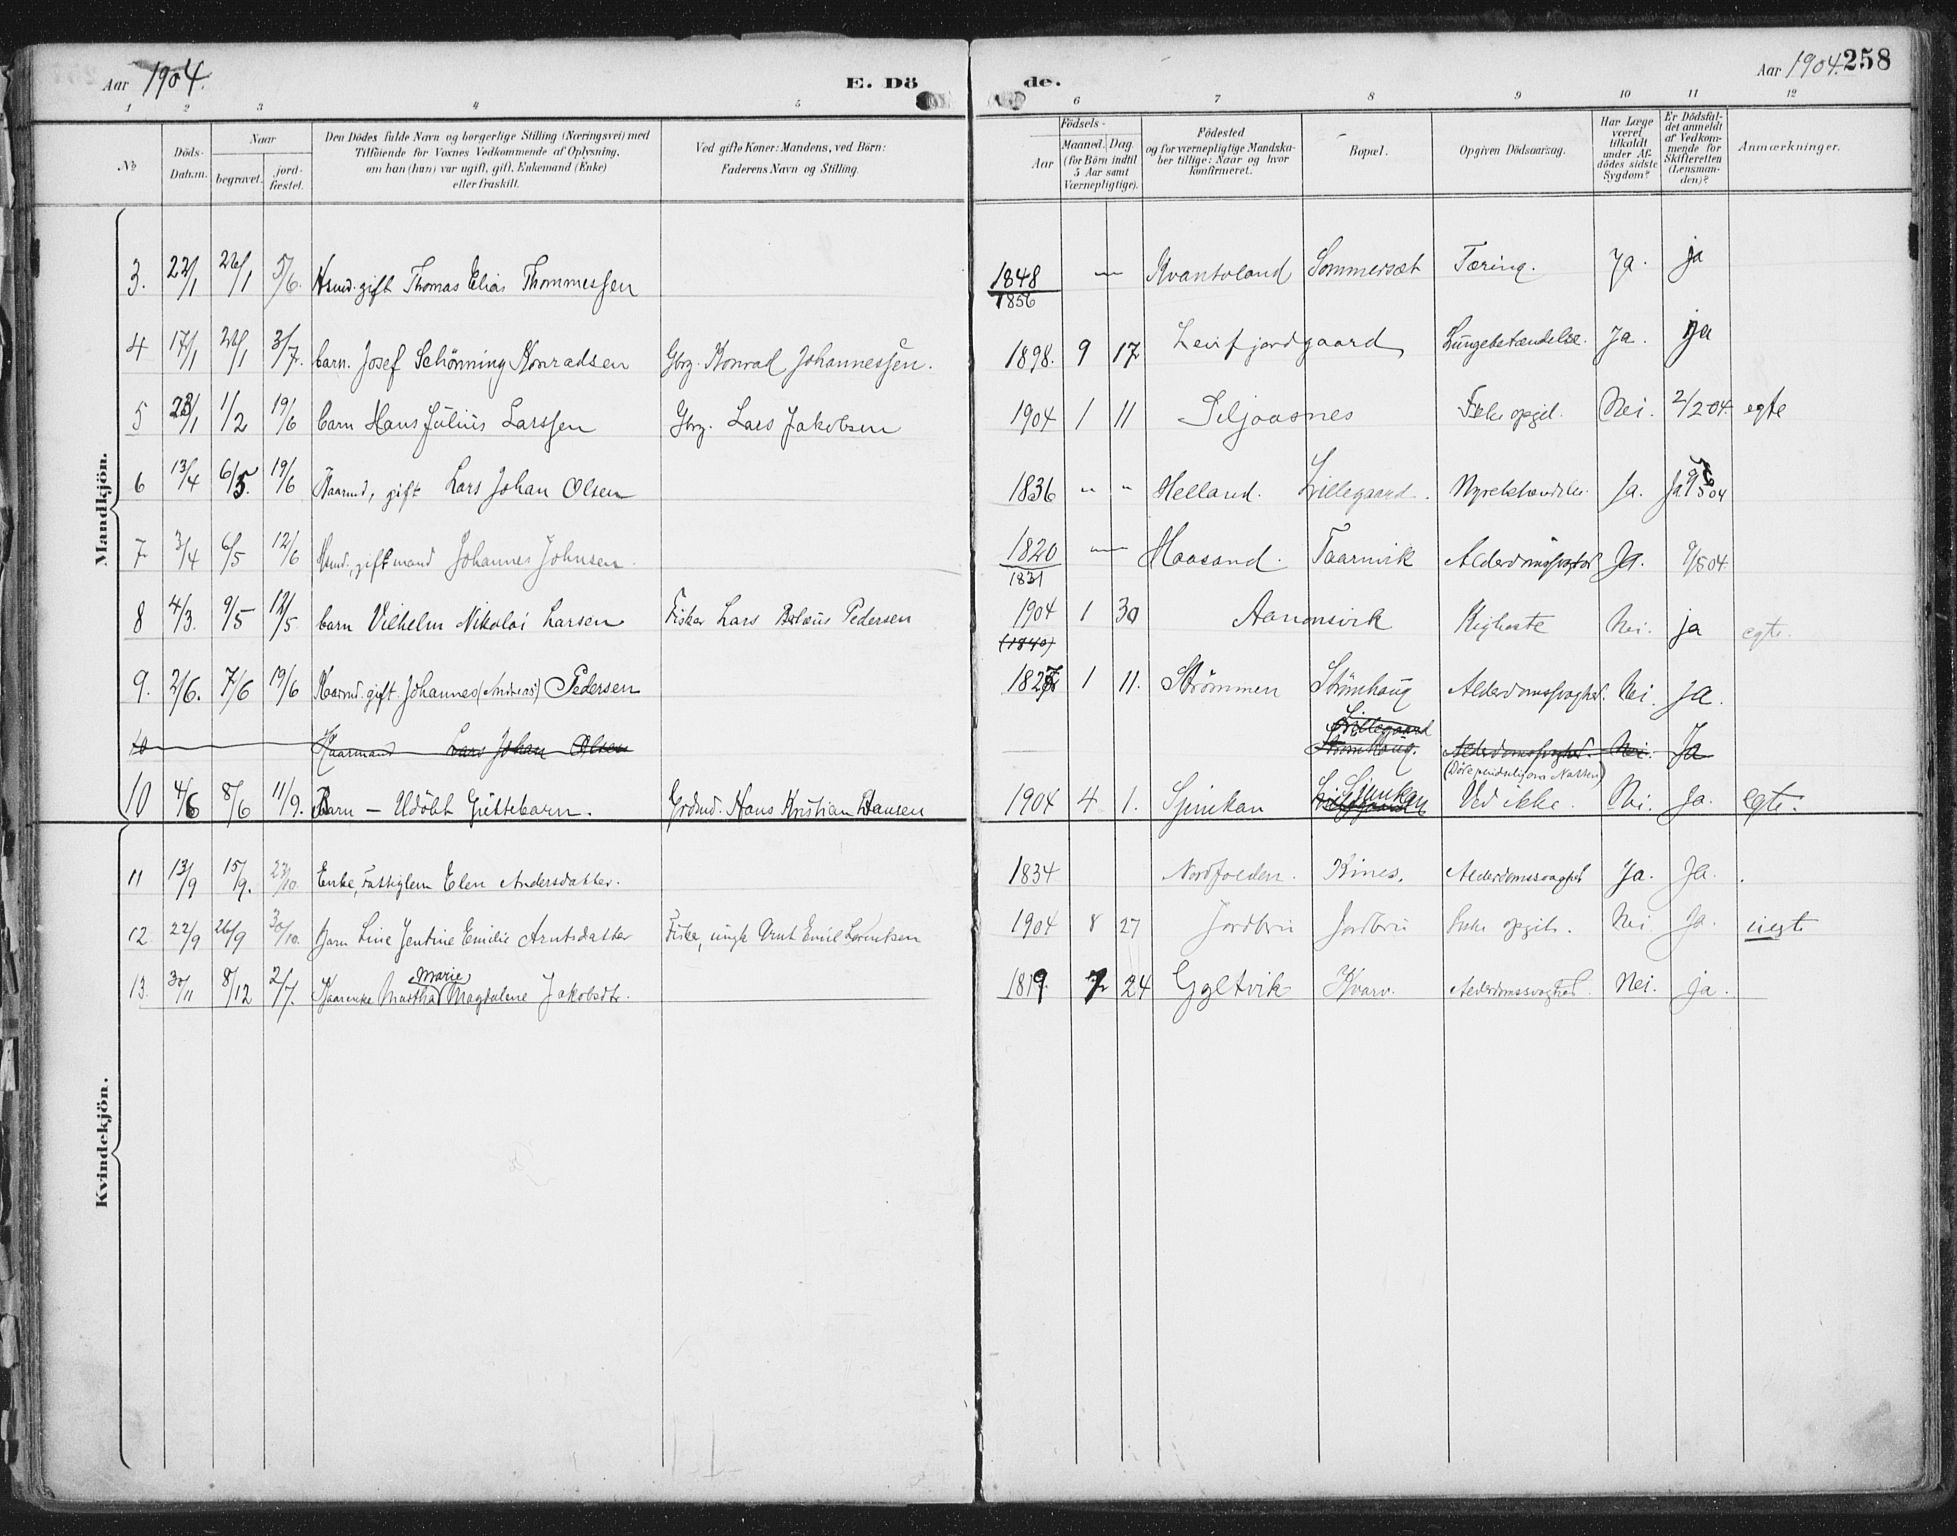 Aar 1904.
E. Dö
de.
Aar 1904.
258
1 2 3 4 5 6 7 8 9 10 11 12
No
Döds-Datum.
Naar
begravet.
jord-fæstet.
Den Dödes fulde Navn og borgerlige Stilling (Næringsvei) med
Tilföiende for Voxnes Vedkommende af Oplysning,
om han (hun) var ugift, gift, Enkemand (Enke)
eller fraskilt.
Ved gifte Koner: Mandens, ved Börn:
Faderens Navn og Stilling.
Födsels-
Aar
Maaned. Dag.
(for Börn indtil
5 Aar samt
Værnepligtige).
Födested
og for værnepligtige Mandska-
ber tillige: Naar og hvor
konfirmeret.
Bopæl.
Opgiven Dödsaarsag.
Har Læge
været
tilkaldt
under Af-
dödes sidste
Sygdom?
Er Dödsfal-
det anmeldt
af Vedkom-
mende for
Skifteretten
(Lensman-
den)?
Anmærkninger.
Mandkjön.
3. 22/1 26/1 5/6. gift Thomas Elias Thommessen 1848 Sommersæt Tæring. Ja. ja
1856
4 17/1 3/7. barn. Josef Schönning Konradsen Gbrg. Konrad Johannessen. 1898. 9 17 Leirfjordgaard Lungebetændelse. Ja. ja
5 1/2 19/6 barn Hans Julius Larssen Gbrg. Lars Jakobsen 1904 1 11 Siljaasnes Ikke opgit. Nei. 2/2 04. egte
6 13/4 6/5. 19/6 Kaarmd, gift Lars Johan Olsen 1836 " " Helland. Lillegaard. Ja.
7 3/4 6/5 12/6 gift mand Johannes Johnsen 1820 Taarnvik Ja.
1831
8 4/3. 9/5 12/5 barn Vilhelm Nikolai Larsen Fisker Lars Pedersen 1904 1 30 Kighoste Nei. ja egte.
(1840)
9. 2/6. 7/6 19/6 Kaarmd. gift Johannes (Andreas) Pedersen 1 11. Strömmen Strömhaug Alderdomssvaghed. Nei. ja.
10 Kaarmand Lars Johan Olsen Lillegaard Strömhaug. Alderdomssvaghed. Nei. Ja
10 4/6 8/6 11/9. Barn – Udöbt Guttebarn. Grdmd. Hans Kristian Hansen 1904 4 1. Ved ikke. Nei. Ja. egte.
Kvindekjön.
11 13/9 15/9. 23/10. Enke, Fattiglem Elen Andersdatter. 1834 Nordfolden. Rines. Alderdomssvaghed Ja. Ja.
12 22/9 26/9 30/10. Barn Line Jentine Emilie Arntsdatter Fisker, ungk Arnt Emil Lorentsen 1904 8 27 Jordbru Jordbru Ikke opgit. Nei. Ja. uegte
13. 30/11 8/12 2/7. Kaarenke Martha Marie Magdalene Jakobsdtr. 1819. 7 24 Kvarv. Alderdomssvaghed. Nei. ja.